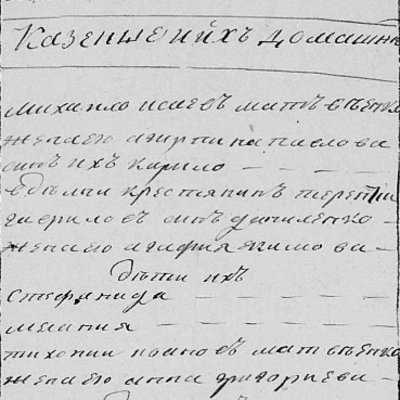 Казенные и ихъ домашни
михаило исаевъ матвѣенко
жена его агирпина павлова
сынъ ихъ кирило
вдѣлии крестянинъ терентии
гаврило въ сынъ даниленко
жена его агафия якимо ва
дѣти ихъ
стефанида
мелания
тихонии ивановъ матвѣенко
жена его анна григориева